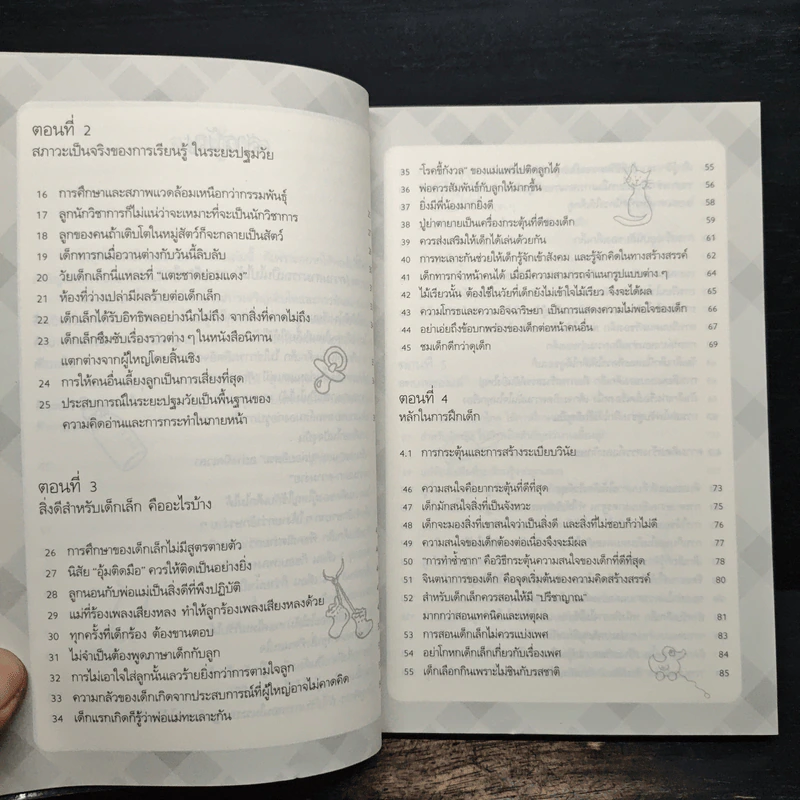 ตอนที่ 2
สภาวะเป็นจริงของการเรียนรู้ ในระยะปฐมวัย
16 การศึกษาและสภาพแวดล้อมเหนือกว่ากรรมพันธุ์
17 ลูกนักวิชาการก็ไม่แน่ว่าจะเหมาะที่จะเป็นนักวิชาการ
18 ลูกของคนถ้าเติบโตในหมู่สัตว์ก็จะกลายเป็นสัตว์
19 เด็กทารกเมื่อวานต่างกับวันนี้ลิบลับ
20 วัยเด็กเล็กนี่แหละที่ "แตะชาดย่อมแดง"
21 ห้องที่ว่างเปล่ามีผลร้ายต่อเด็กเล็ก
22 เด็กเล็กได้รับอิทธิพลอย่างนึกไม่ถึง จากสิ่งที่คาดไม่ถึง
23 เด็กเล็กซึมซับเรื่องราวต่าง ๆ ในหนังสือนิทาน
แตกต่างจากผู้ใหญ่โดยสิ้นเชิง
24 การให้คนอื่นเลี้ยงลูกเป็นการเสี่ยงที่สุด
25 ประสบการณ์ในระยะปฐมวัยเป็นพื้นฐานของ
ความคิดอ่านและการกระทำในภายหน้า
ตอนที่ 3
สิ่งดีสำหรับเด็กเล็ก คืออะไรบ้าง
26 การศึกษาของเด็กเล็กไม่มีสูตรตายตัว
27 นิสัย "อุ้มติดมือ" ควรให้ติดเป็นอย่างยิ่ง
28 ลูกนอนกับพ่อแม่เป็นสิ่งดีที่พึงปฏิบัติ
29 แม่ที่ร้องเพลงเสียงหลง ทำให้ลูกร้องเพลงเสียงหลงด้วย
30 ทุกครั้งที่เด็กร้อง ต้องขานตอบ
31 ไม่จำเป็นต้องพูดภาษาเด็กกับลูก
32 การไม่เอาใจใส่ลูกนั้นเลวร้ายยิ่งกว่าการตามใจลูก
33 ความกลัวของเด็กเกิดจากประสบการณ์ที่ผู้ใหญ่อาจไม่คาดคิด
34 เด็กแรกเกิดก็รู้ว่าพ่อแม่ทะเลาะกัน
35 "โรคขี้กังวล" ของแม่แพร่ไปติดลูกได้ 55
36 พ่อควรสัมพันธ์กับลูกให้มากขึ้น 56
37 ยิ่งมีพี่น้องมากยิ่งดี 58
38 ปู่ย่าตายายเป็นเครื่องกระตุ้นที่ดีของเด็ก 59
39 ควรส่งเสริมให้เด็กได้เล่นด้วยกัน 61
40 การทะเลาะกันช่วยให้เด็กรู้จักเข้าสังคม และรู้จักคิดในทางสร้างสรรค์ 62
41 เด็กทารกจำหน้าคนได้ เมื่อมีความสามารถจำแนกรูปแบบต่าง ๆ 64
42 ไม้เรียวนั้น ต้องใช้ในวัยที่เด็กยังไม่เข้าใจไม้เรียว จึงจะได้ผล 65
43 ความโกรธและความอิจฉาริษยา เป็นการแสดงความไม่พอใจของเด็ก 66
44 อย่าเอ่ยถึงข้อบกพร่องของเด็กต่อหน้าคนอื่น 67
45 ชมเด็กดีกว่าดุเด็ก 69
ตอนที่ 4
หลักในการฝึกเด็ก
4.1 การกระตุ้นและการสร้างระเบียบวินัย
46 ความสนใจคือยากระตุ้นที่ดีที่สุด 73
47 เด็กมักสนใจสิ่งที่เป็นจังหวะ 75
48 เด็กจะมองสิ่งที่เขาสนใจว่าเป็นสิ่งดี และสิ่งที่ไม่ชอบก็ว่าไม่ดี 76
49 ความสนใจของเด็กต้องต่อเนื่องจึงจะมีผล 77
50 "การทำซ้ำซาก" คือวิธีกระตุ้นความสนใจของเด็กที่ดีที่สุด 78
51 จินตนาการของเด็ก คือจุดเริ่มต้นของความคิดสร้างสรรค์ 80
52 สำหรับเด็กเล็กควรสอนให้มี "ปรีชาญาณ"
มากกว่าสอนเทคนิคและเหตุผล 81
53 การสอนเด็กเล็กไม่ควรแบ่งเพศ 83
54 อย่าโกหกเด็กเล็กเกี่ยวกับเรื่องเพศ 84
55 เด็กเลือกกินเพราะไม่ชินกับรสชาติ 85